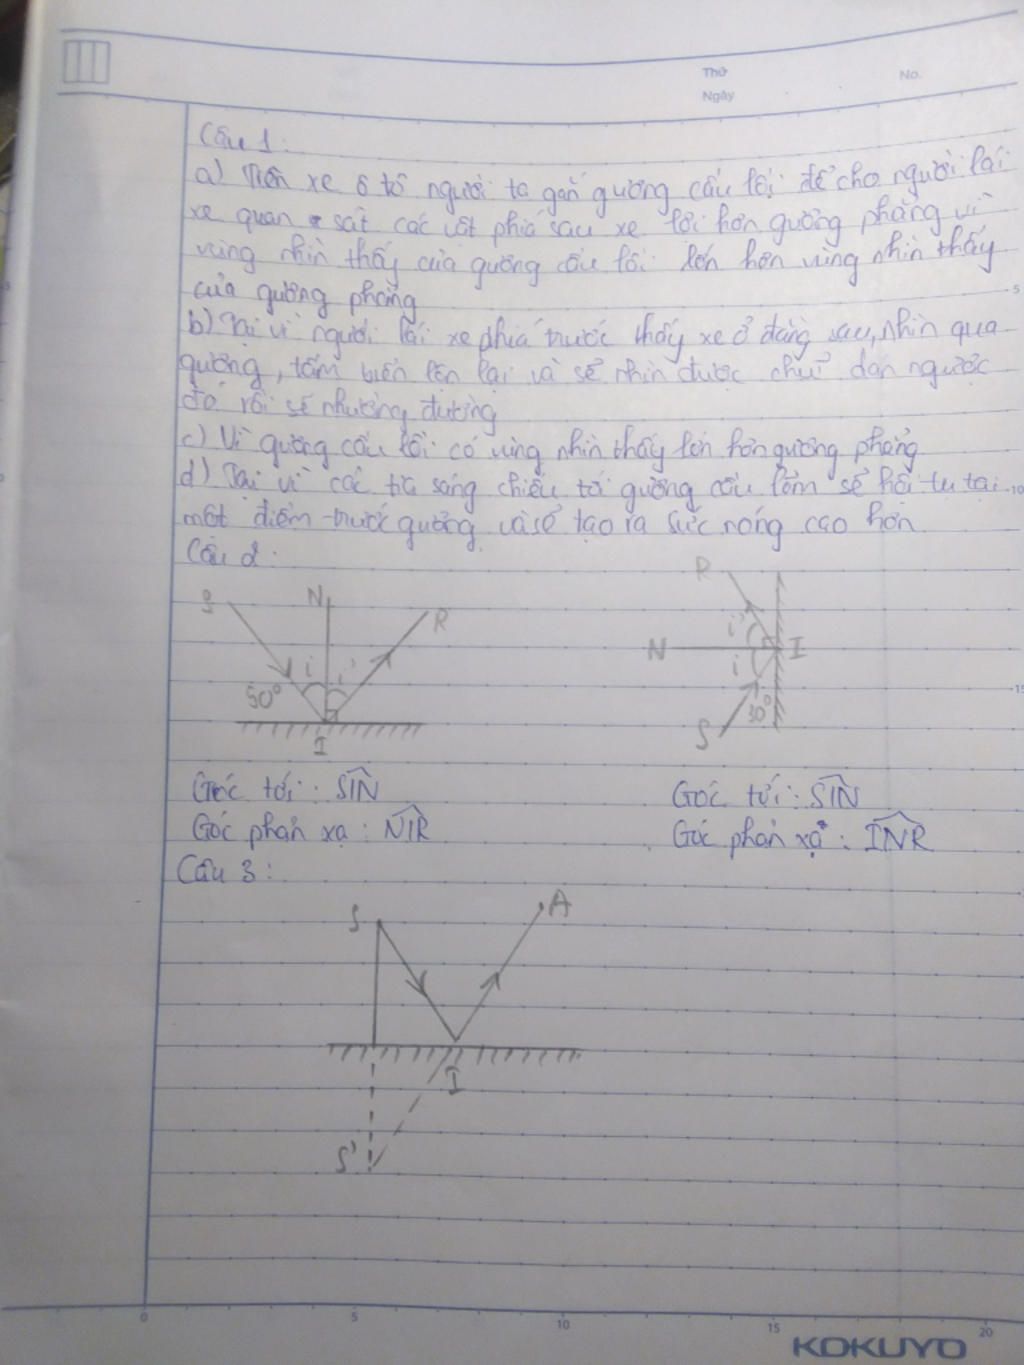 Thứ
No.
Ngày
Câu 1:
a) Trên xe ô tô người ta gắn gương cầu lồi để cho người lái
xe quan sát các vật phía sau xe lợi hơn gương phẳng vì
vùng nhìn thấy của gương cầu lồi lớn hơn vùng nhìn thấy
của gương phẳng
b) Tại vì người lái xe phía trước thấy xe ở đằng sau, nhìn qua
gương, tấm biển lộn lại và sẽ nhìn được chữ dán ngược
đó rồi sẽ nhường đường
c) Vì gương cầu lồi có vùng nhìn thấy lớn hơn gương phẳng
d) Tại vì các tia sáng chiếu tới gương cầu lõm sẽ hội tụ tại
một điểm trước gương và sẽ tạo ra sức nóng cao hơn
Câu 2:
S N R
i i'
50°
I
R
i'
N I
i
30°
S
Góc tới: SIN
Góc tới: SIN
Góc phản xạ: NIR
Góc phản xạ: INR
Câu 3:
S A
I
S'
5
10
15
0 5 10 15 20
KOKUYO